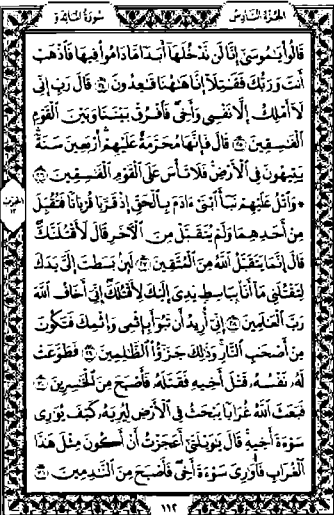 الجزء السادس سورة المائدة
قَالُوا۟ يَـٰمُوسَىٰٓ إِنَّا لَن نَّدْخُلَهَآ أَبَدًا مَّا دَامُوا۟ فِيهَا فَٱذْهَبْ
أَنتَ وَرَبُّكَ فَقَـٰتِلَآ إِنَّا هَـٰهُنَا قَـٰعِدُونَ ۝٢٤ قَالَ رَبِّ إِنِّى
لَآ أَمْلِكُ إِلَّا نَفْسِى وَأَخِى فَٱفْرُقْ بَيْنَنَا وَبَيْنَ ٱلْقَوْمِ
ٱلْفَـٰسِقِينَ ۝٢٥ قَالَ فَإِنَّهَا مُحَرَّمَةٌ عَلَيْهِمْ أَرْبَعِينَ سَنَةً
يَتِيهُونَ فِى ٱلْأَرْضِ فَلَا تَأْسَ عَلَى ٱلْقَوْمِ ٱلْفَـٰسِقِينَ ۝٢٦
۞ وَٱتْلُ عَلَيْهِمْ نَبَأَ ٱبْنَىْ ءَادَمَ بِٱلْحَقِّ إِذْ قَرَّبَا قُرْبَانًا فَتُقُبِّلَ
مِنْ أَحَدِهِمَا وَلَمْ يُتَقَبَّلْ مِنَ ٱلْـَٔاخَرِ قَالَ لَأَقْتُلَنَّكَ
قَالَ إِنَّمَا يَتَقَبَّلُ ٱللَّهُ مِنَ ٱلْمُتَّقِينَ ۝٢٧ لَئِنۢ بَسَطتَ إِلَىَّ يَدَكَ
لِتَقْتُلَنِى مَآ أَنَا۠ بِبَاسِطٍ يَدِىَ إِلَيْكَ لِأَقْتُلَكَ إِنِّىٓ أَخَافُ ٱللَّهَ
رَبَّ ٱلْعَـٰلَمِينَ ۝٢٨ إِنِّىٓ أُرِيدُ أَن تَبُوٓأَ بِإِثْمِى وَإِثْمِكَ فَتَكُونَ
مِنْ أَصْحَـٰبِ ٱلنَّارِ وَذَٰلِكَ جَزَٰٓؤُا۟ ٱلظَّـٰلِمِينَ ۝٢٩ فَطَوَّعَتْ
لَهُۥ نَفْسُهُۥ قَتْلَ أَخِيهِ فَقَتَلَهُۥ فَأَصْبَحَ مِنَ ٱلْخَـٰسِرِينَ ۝٣٠
فَبَعَثَ ٱللَّهُ غُرَابًا يَبْحَثُ فِى ٱلْأَرْضِ لِيُرِيَهُۥ كَيْفَ يُوَٰرِى
سَوْءَةَ أَخِيهِ قَالَ يَـٰوَيْلَتَىٰٓ أَعَجَزْتُ أَنْ أَكُونَ مِثْلَ هَـٰذَا
ٱلْغُرَابِ فَأُوَٰرِىَ سَوْءَةَ أَخِى فَأَصْبَحَ مِنَ ٱلنَّـٰدِمِينَ ۝٣١
١١٢